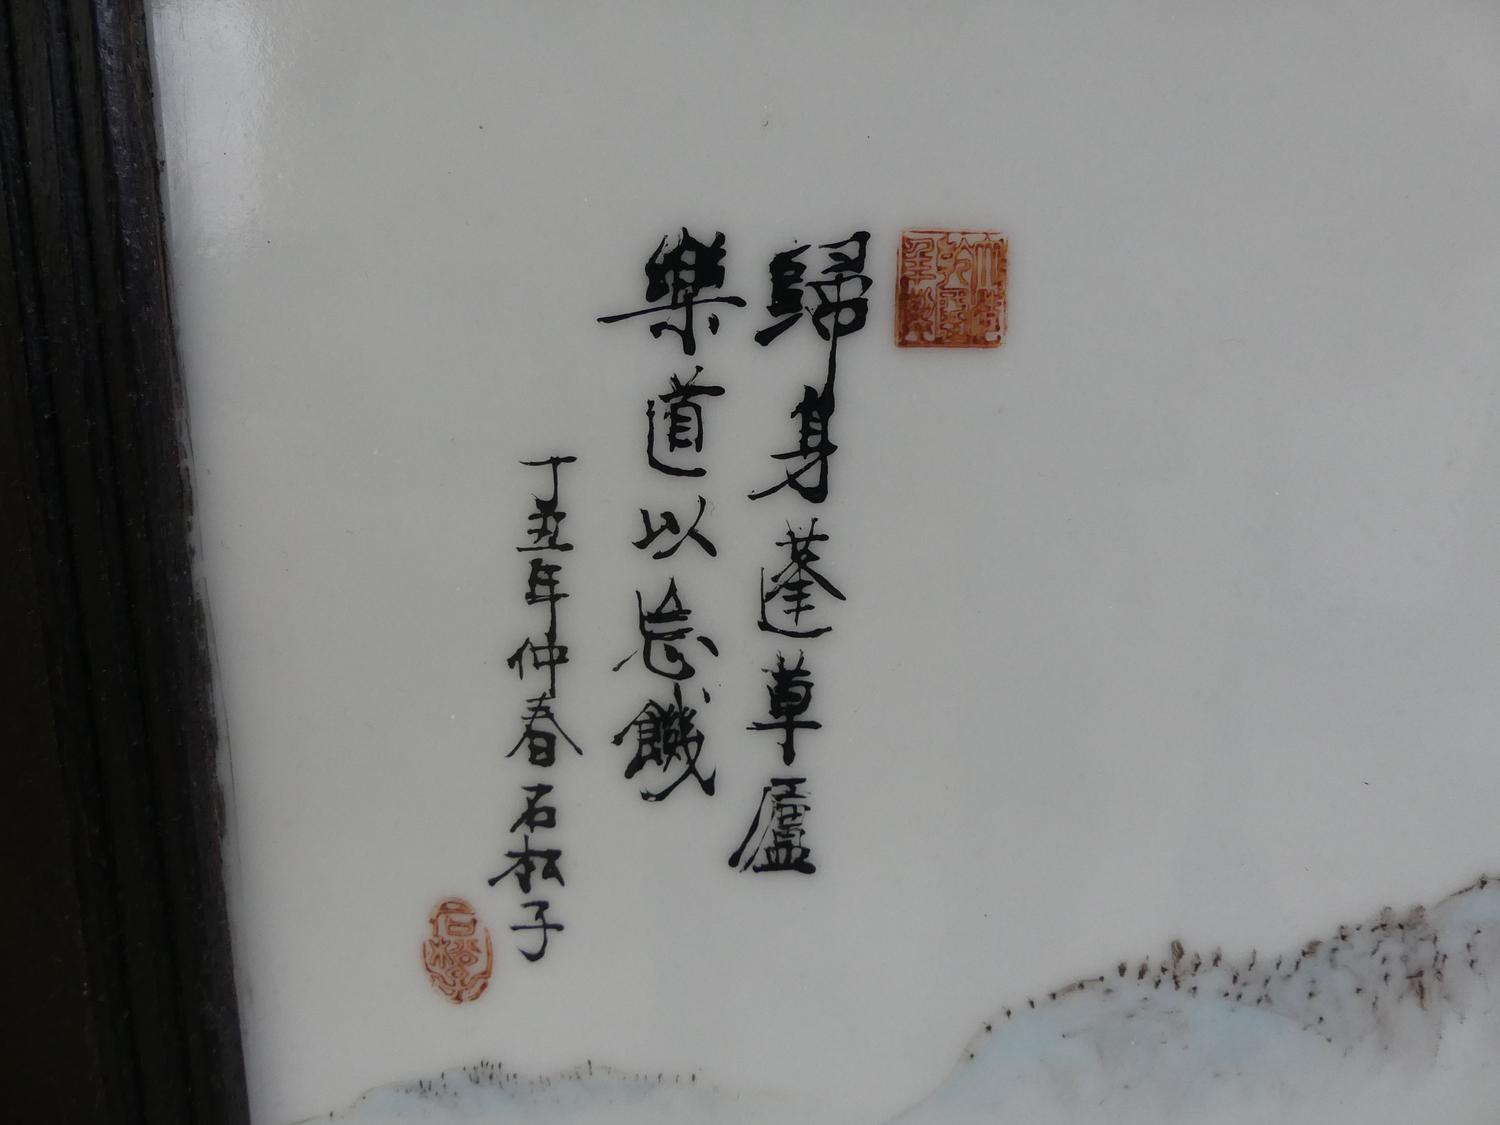 歸身蓬草廬
樂道以忘饑
丁丑年仲春石松子
石松子